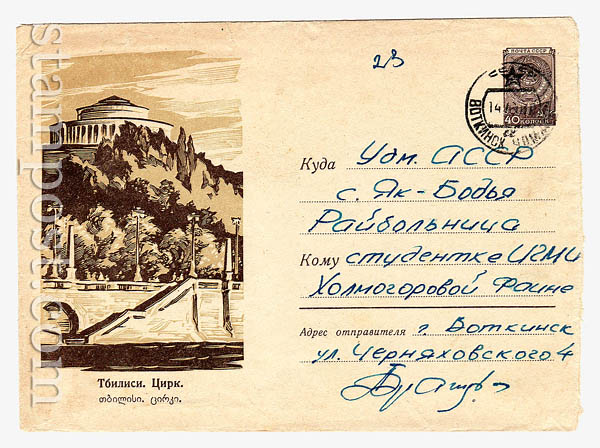 23
ПОЧТА СССР
40 КОПЕЕК
ВОТКИНСК
Куда Удм. АССР
с. Як-Бодья
Райбольница
Кому студентке ИГМИ
Холмогоровой Фаине
Адрес отправителя г. Воткинск
ул. Черняховского 4
Тбилиси. Цирк.
თბილისი. ცირკი.
stampost.com